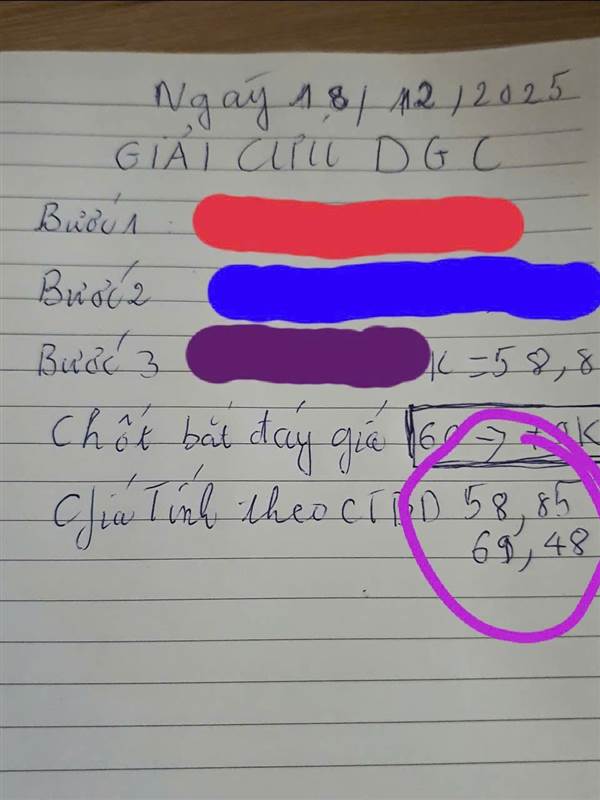 Ngaý 18/12/2025
GIẢI CỨU DGC
Bước 1
Bước 2
Bước 3 K = 58,8
Chốt bắt đáy giá
Giá Tính theo 58,85
69,48